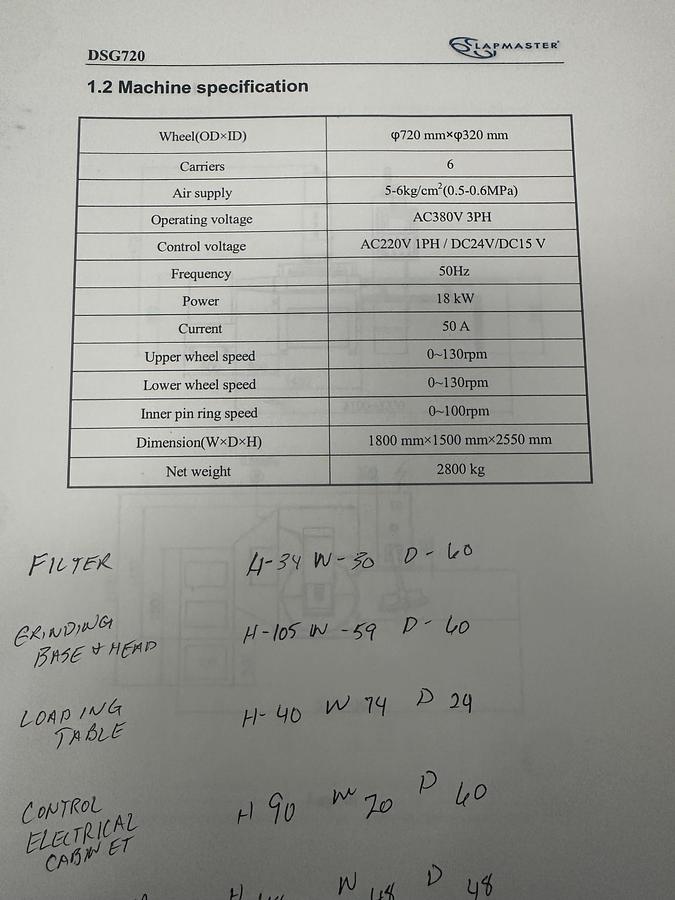 DSG720
LAPMASTER
1.2 Machine specification
Wheel(OD×ID) φ720 mm×φ320 mm
Carriers 6
Air supply 5-6kg/cm²(0.5-0.6MPa)
Operating voltage AC380V 3PH
Control voltage AC220V 1PH / DC24V/DC15 V
Frequency 50Hz
Power 18 kW
Current 50 A
Upper wheel speed 0~130rpm
Lower wheel speed 0~130rpm
Inner pin ring speed 0~100rpm
Dimension(W×D×H) 1800 mm×1500 mm×2550 mm
Net weight 2800 kg
FILTER H-34 W-30 D-60
GRINDING H-105 W-59 D-60
BASE & HEAD
LOADING H-40 W 74 D 24
TABLE
CONTROL H 90 W 20 D 60
ELECTRICAL
CABINET
H W 48 D 48